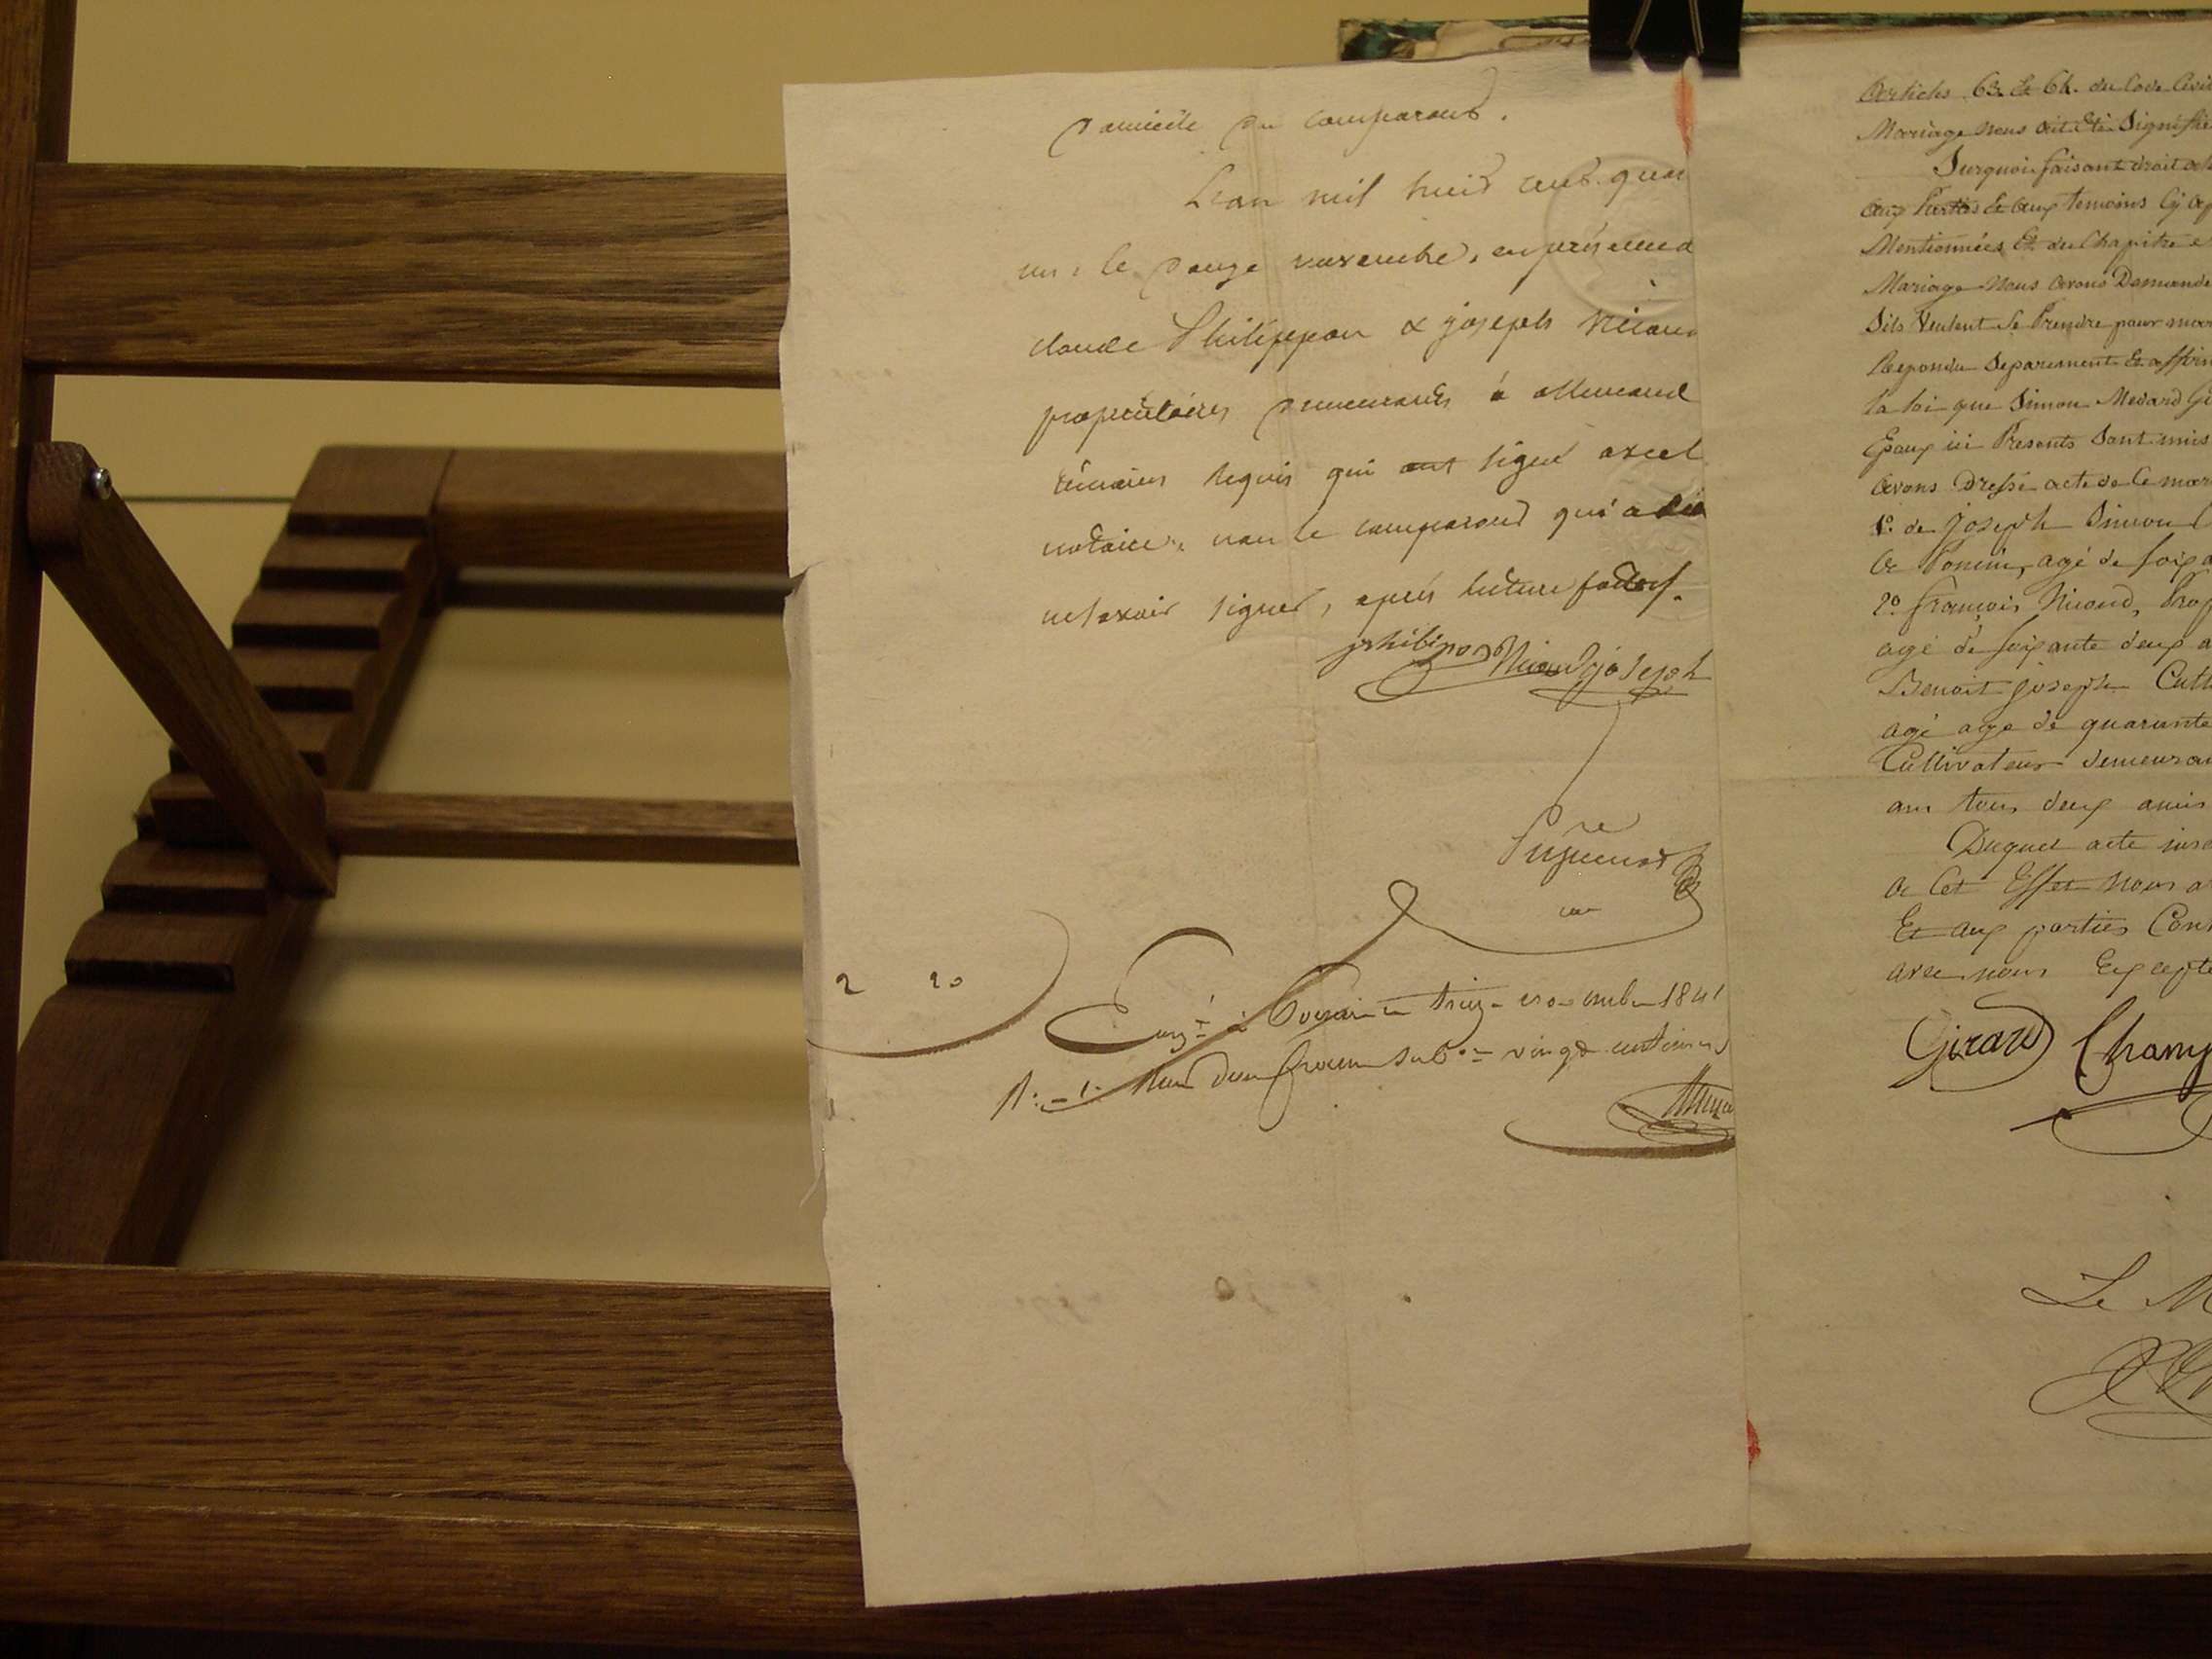 domicile du comparant.
L'an mil huit cent quar
un, le douze novembre, en présence d
claude Philippon & joseph Nicoud
propriétaires demeurants à allemand
témoins requis qui ont signé avec l
notaire, non le comparant qui a dit
ne savoir signer, après lecture faite
philipon Nicoud joseph
2 20
Enregt à novembre 1841
Reçu deux francs subon vingt centimes
Articles 63 Et 64 du Code Civil
Mariage nous ait Eté Signifié
Surquoi faisant droit
aux Parties Et aux temoins Cy
Mentionnées Et du Chapitre
Mariage Nous avons Demandé
S'ils Veulent Se Prendre pour mar
Repondu Separement Et affirm
la loi que Simon Medard Gi
Epoux ici Presents Sont unis
avons Dressé acte de Ce mar
1º de joseph Simon
agé de soixa
2º françois Nicoud, Prop
agé de soixante deux a
Benoit joseph Cult
agé age de quarante
Cultivateur demeuran
ans tous deux amis
Duquel acte
a Cet Effet Nous a
Et aux parties Con
avec nous Excepté
Girard Champ
Le M